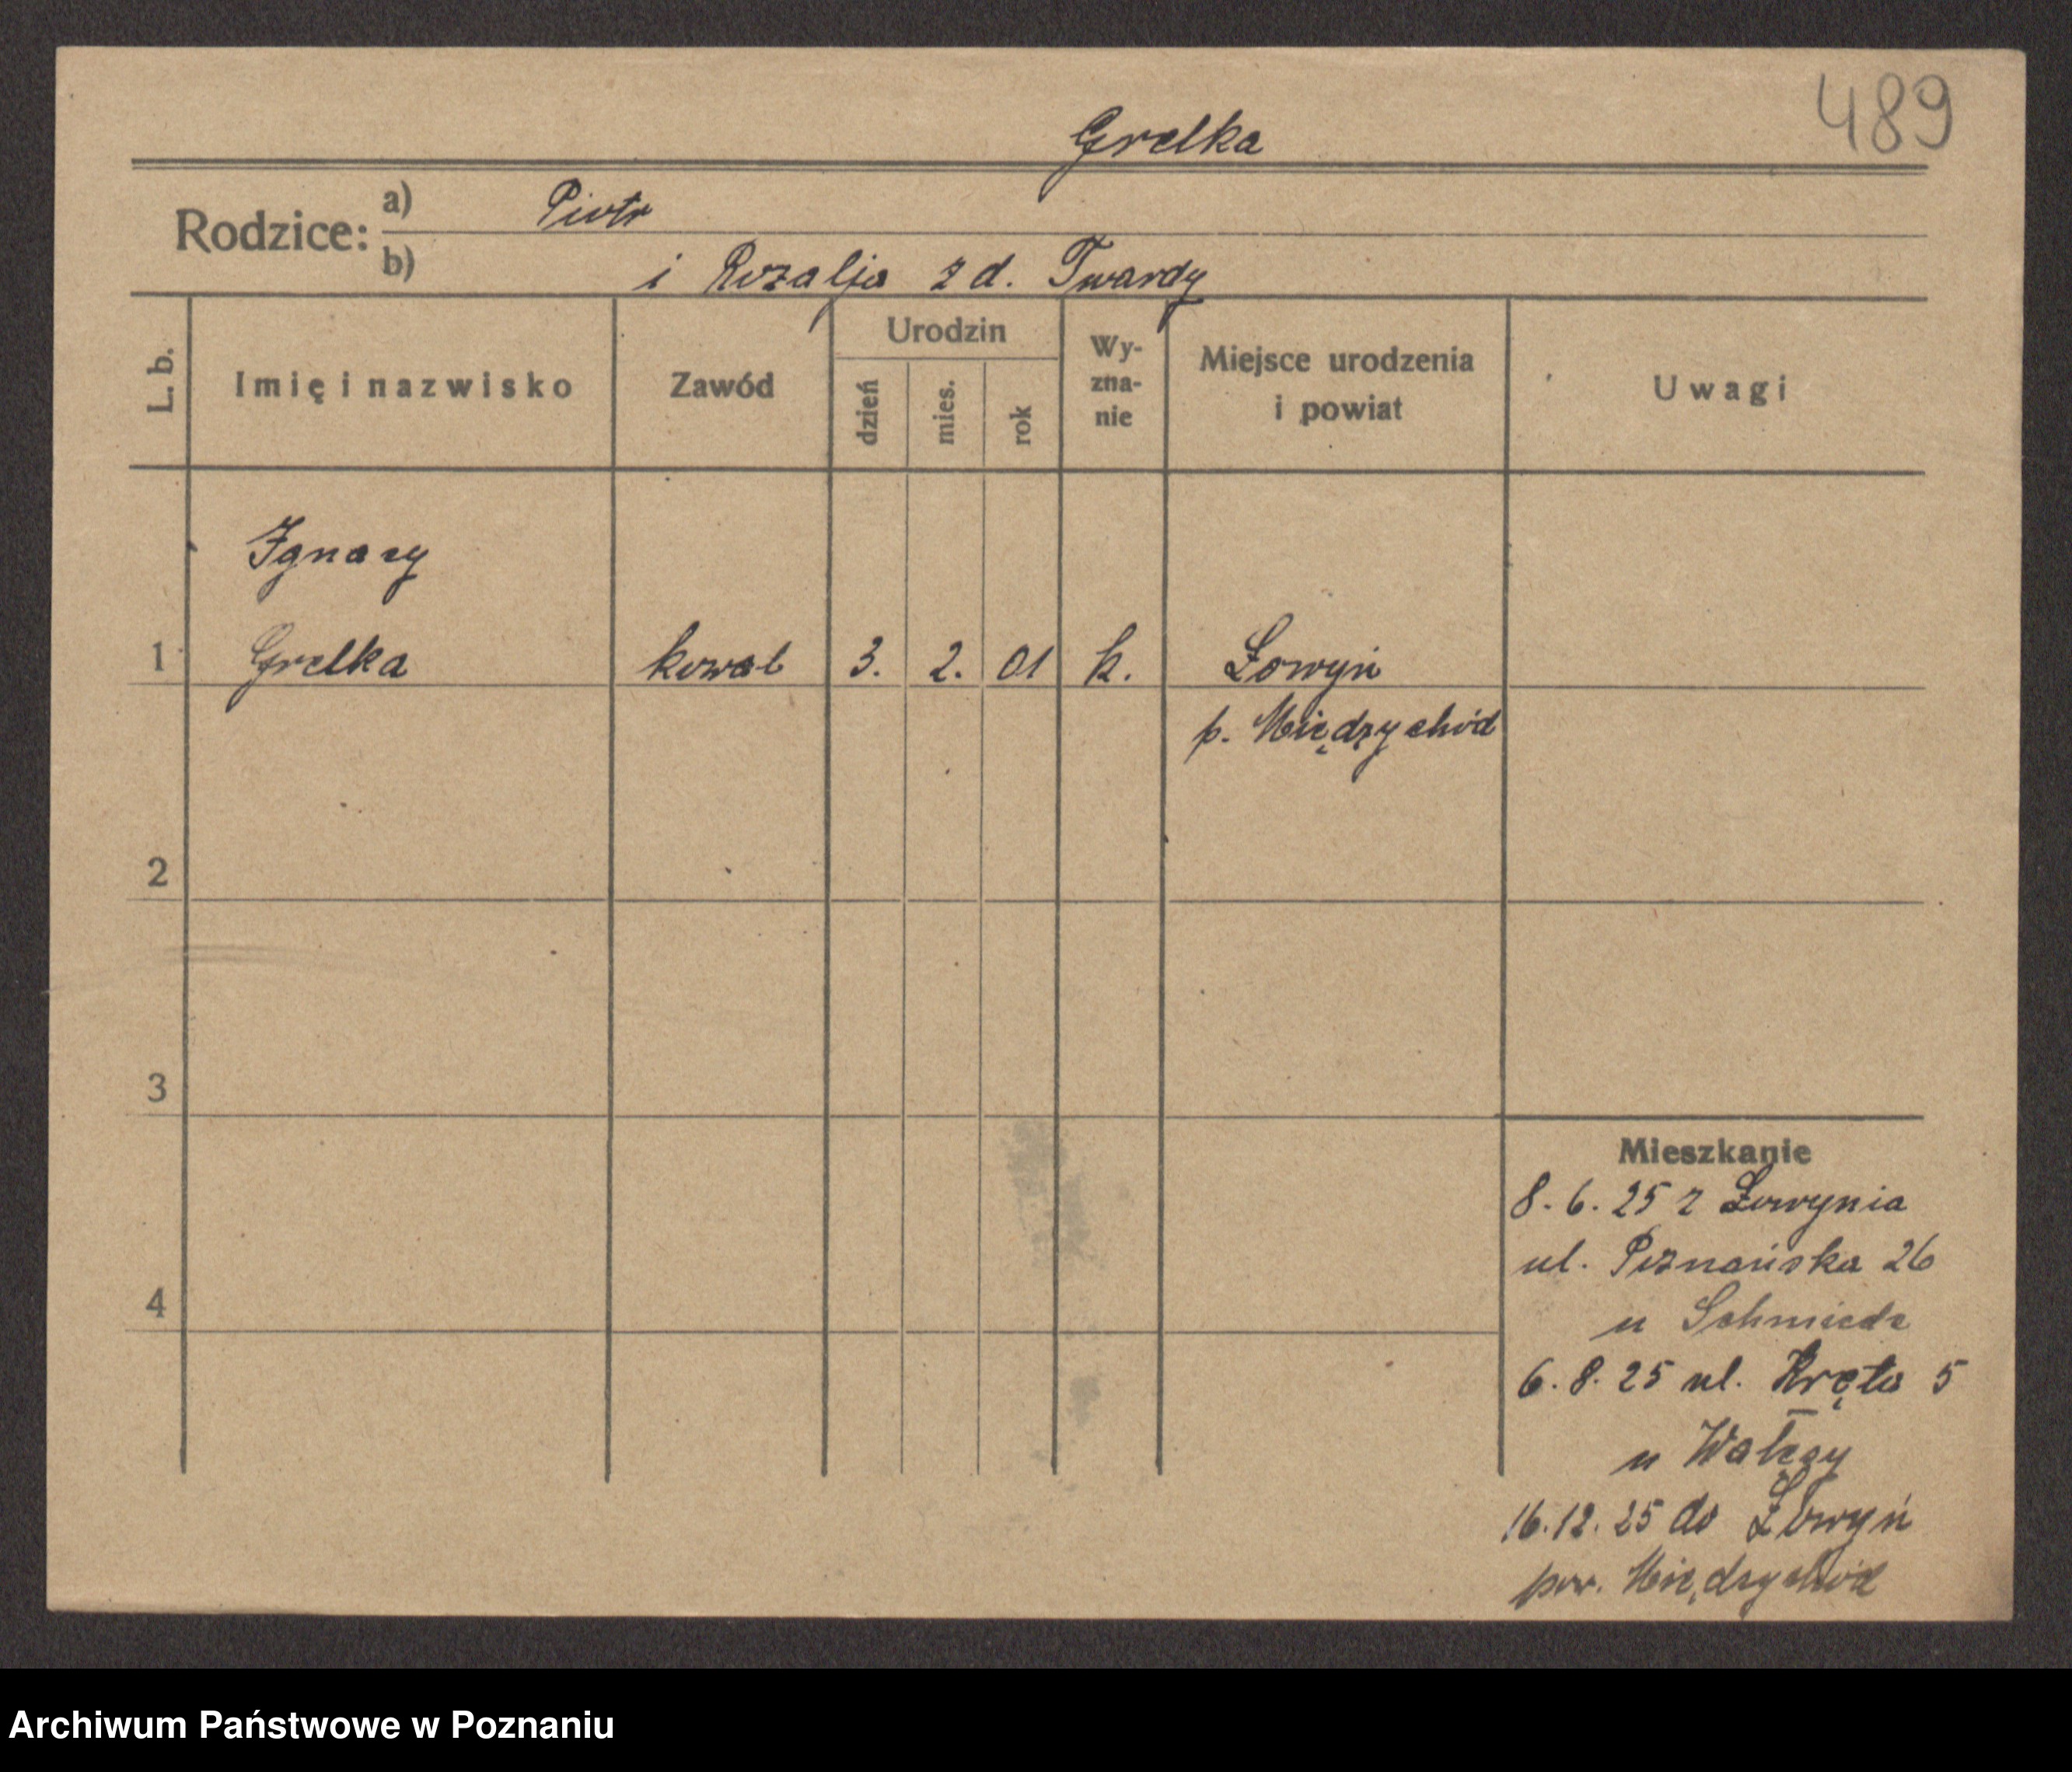 489
Grelka
Rodzice:
a) Piotr
b) i Rozalja z d. Twardy
L. b.
Imię i nazwisko
Zawód
Urodzin
dzień
mies.
rok
Wy-
zna-
nie
Miejsce urodzenia
i powiat
Uwagi
Ignacy
1 Grelka kowal 3. 2. 01 k. Łowyń
p. Międzychód
2
3
4
Mieszkanie
8. 6. 25 z Łowynia
ul. Poznańska 26
u Schmiede
6. 8. 25 ul. Kręta 5
u
16. 12. 25 do Łowyń
pow. Międzychód
Archiwum Państwowe w Poznaniu